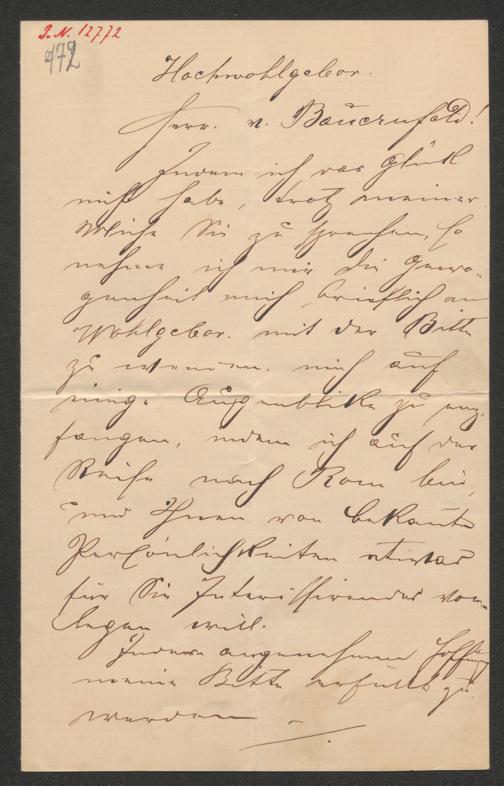 J. N. 12772
472
Hochwohlgebor.
Herr. v. Bauernfeld!
Indem ich das Glük
nicht habe, trotz meiner
Mühe Sie zu sprechen, so
nehme ich mir die Gewo-
genheit mich brieflich an
Wohlgebor. mit der Bitte
zu wenden. mich auf
einige Augenblike zu emp-
fangen, indem ich auf der
Reise nach Rom bin,
und Ihnen von bekante
Persönlichkeiten etwas
für Sie Interissirendes vor-
legen will.
Indem angenehmen Hoffnung
meine Bitte erfüllt zu
werden